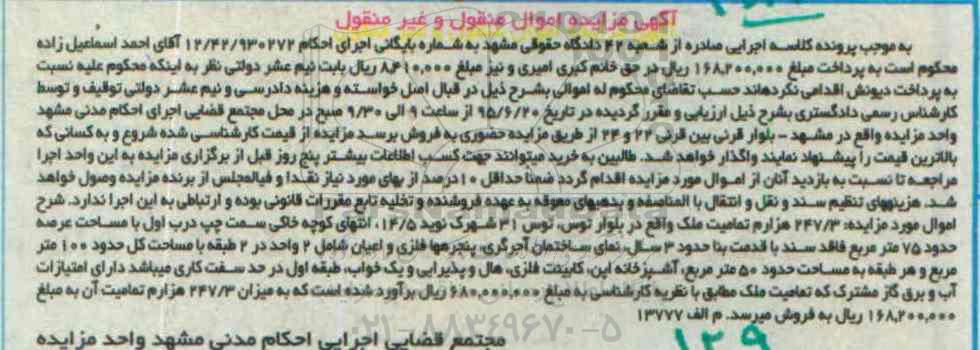 آگهی مزایده اموال منقول و غیر منقول
به موجب پرونده کلاسه اجرایی صادره از شعبه ۴۲ دادگاه حقوقی مشهد به شماره بایگانی اجرای احکام ۱۲/۴۲/۹۳۰۲۷۲ آقای احمد اسماعیل زاده
محکوم است به پرداخت مبلغ ۱۶۸,۲۰۰,۰۰۰ ریال در حق خانم کبری امیری و نیز مبلغ ۸,۴۱۰,۰۰۰ ریال بابت نیم عشر دولتی نظر به اینکه محکوم علیه نسبت
به پرداخت دیونش اقدامی نکرده‌اند حسب تقاضای محکوم له اموالی بشرح ذیل در قبال اصل خواسته و هزینه دادرسی و نیم عشر دولتی توقیف و توسط
کارشناس رسمی دادگستری بشرح ذیل ارزیابی و مقرر گردیده در تاریخ ۹۵/۶/۲۰ از ساعت ۹ الی ۹/۳۰ صبح در محل مجتمع قضایی اجرای احکام مدنی مشهد
واحد مزایده واقع در مشهد - بلوار قرنی بین قرنی ۲۲ و ۲۴ از طریق مزایده حضوری به فروش برسد مزایده از قیمت کارشناسی شده شروع و به کسانی که
بالاترین قیمت را پیشنهاد نمایند واگذار خواهد شد. طالبین به خرید میتوانند جهت کسب اطلاعات بیشتر پنج روز قبل از برگزاری مزایده به این واحد اجرا
مراجعه تا نسبت به بازدید آنان از اموال مورد مزایده اقدام گردد ضمنا حداقل ۱۰ درصد از بهای مورد نیاز نقدا و فی‌المجلس از برنده مزایده وصول خواهد
شد. هزینه‎های تنظیم سند و نقل و انتقال با المناصفه و بدهیهای معوقه به عهده فروشنده و تخلیه تابع مقررات قانونی بوده و ارتباطی به این اجرا ندارد. شرح
اموال مورد مزایده: ۲۴۷/۳ هزارم تمامیت ملک واقع در بلوار توس، توس ۳۱ شهرک نوید ۱۴/۵، انتهای کوچه خاکی سمت چپ درب اول با مساحت عرصه
حدود ۷۵ متر مربع فاقد سند با قدمت بنا حدود ۳ سال، نمای ساختمان آجرگری، پنجره‌ها فلزی و اعیان شامل ۲ واحد در ۲ طبقه با مساحت کل حدود ۱۰۰ متر
مربع و هر طبقه به مساحت حدود ۵۰ متر مربع، آشپزخانه اپن، کابینت فلزی، هال و پذیرایی و یک خواب، طبقه اول در حد سفت کاری میباشد دارای امتیازات
آب و برق گاز مشترک که تمامیت ملک مطابق با نظریه کارشناسی به مبلغ ۶۸۰,۰۰۰,۰۰۰ ریال برآورد شده است که به میزان ۲۴۷/۳ هزارم تمامیت آن به مبلغ
۱۶۸,۲۰۰,۰۰۰ ریال به فروش میرسد. م الف ۱۳۷۷۷
۰۲۱-۸۸۳۴۹۶۷۰-۵
مجتمع قضایی اجرایی احکام مدنی مشهد واحد مزایده
۱۲۹